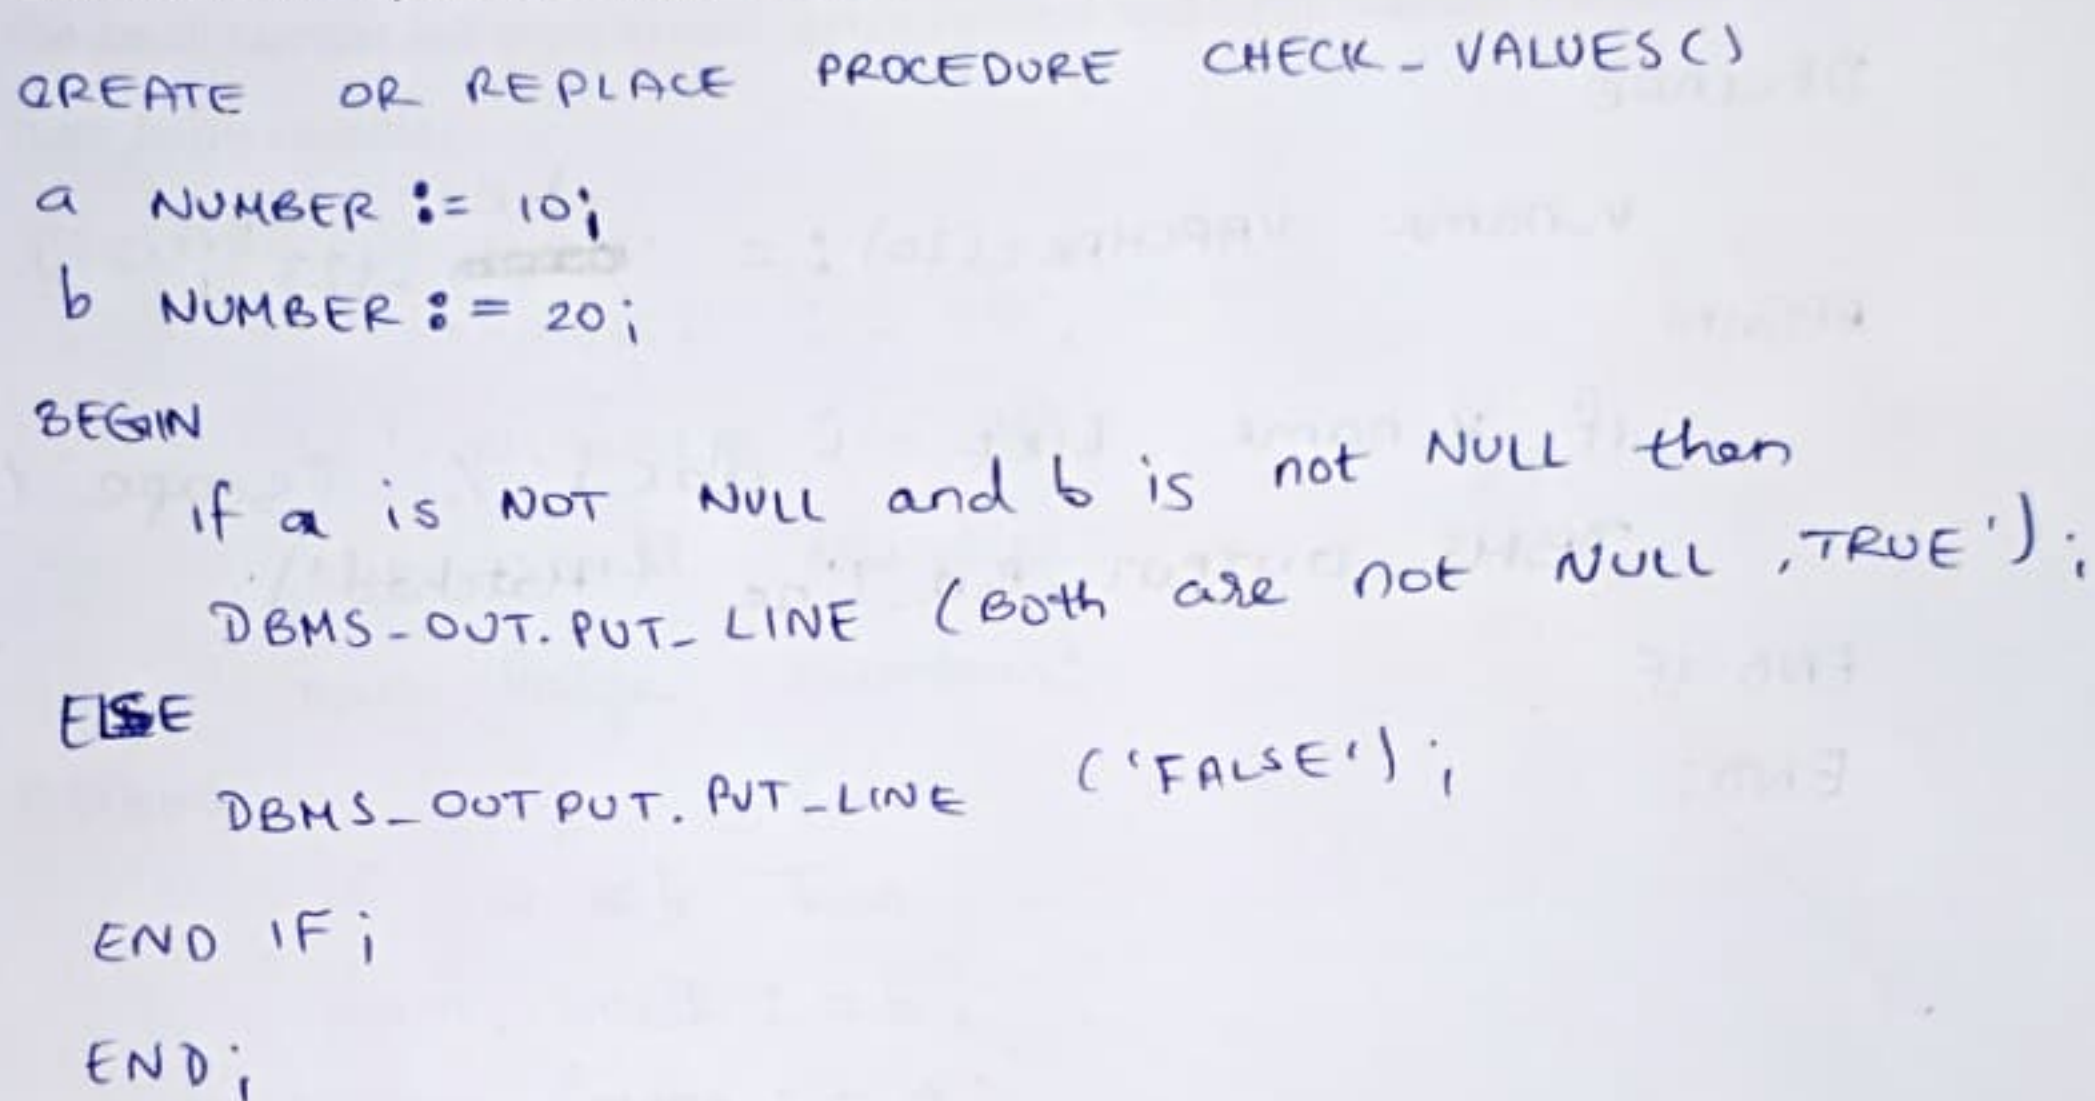 CREATE OR REPLACE PROCEDURE CHECK_VALUES()
a NUMBER := 10;
b NUMBER := 20;
BEGIN
if a is NOT NULL and b is not NULL then
DBMS_OUT.PUT_LINE (Both are not NULL, TRUE');
ELSE
DBMS_OUTPUT.PUT_LINE ('FALSE');
END IF;
END;